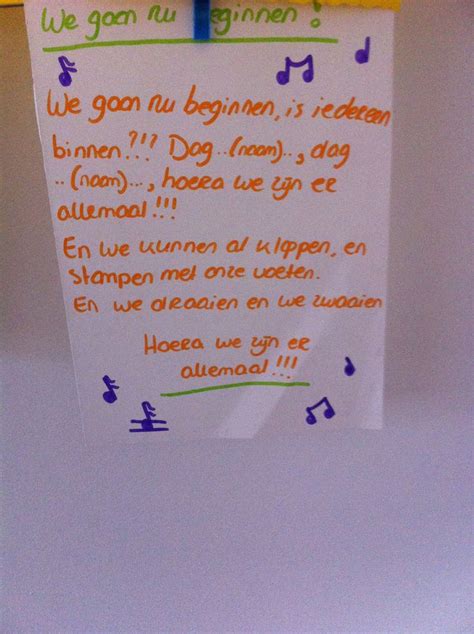 We gaan nu beginnen!
We gaan nu beginnen, is iedereen
binnen?!? Dag..(naam).., dag
..(naam)..., hoera we zijn er
allemaal!!!
En we kunnen al klappen, en
stampen met onze voeten.
En we draaien en we zwaaien
Hoera we zijn er
allemaal!!!